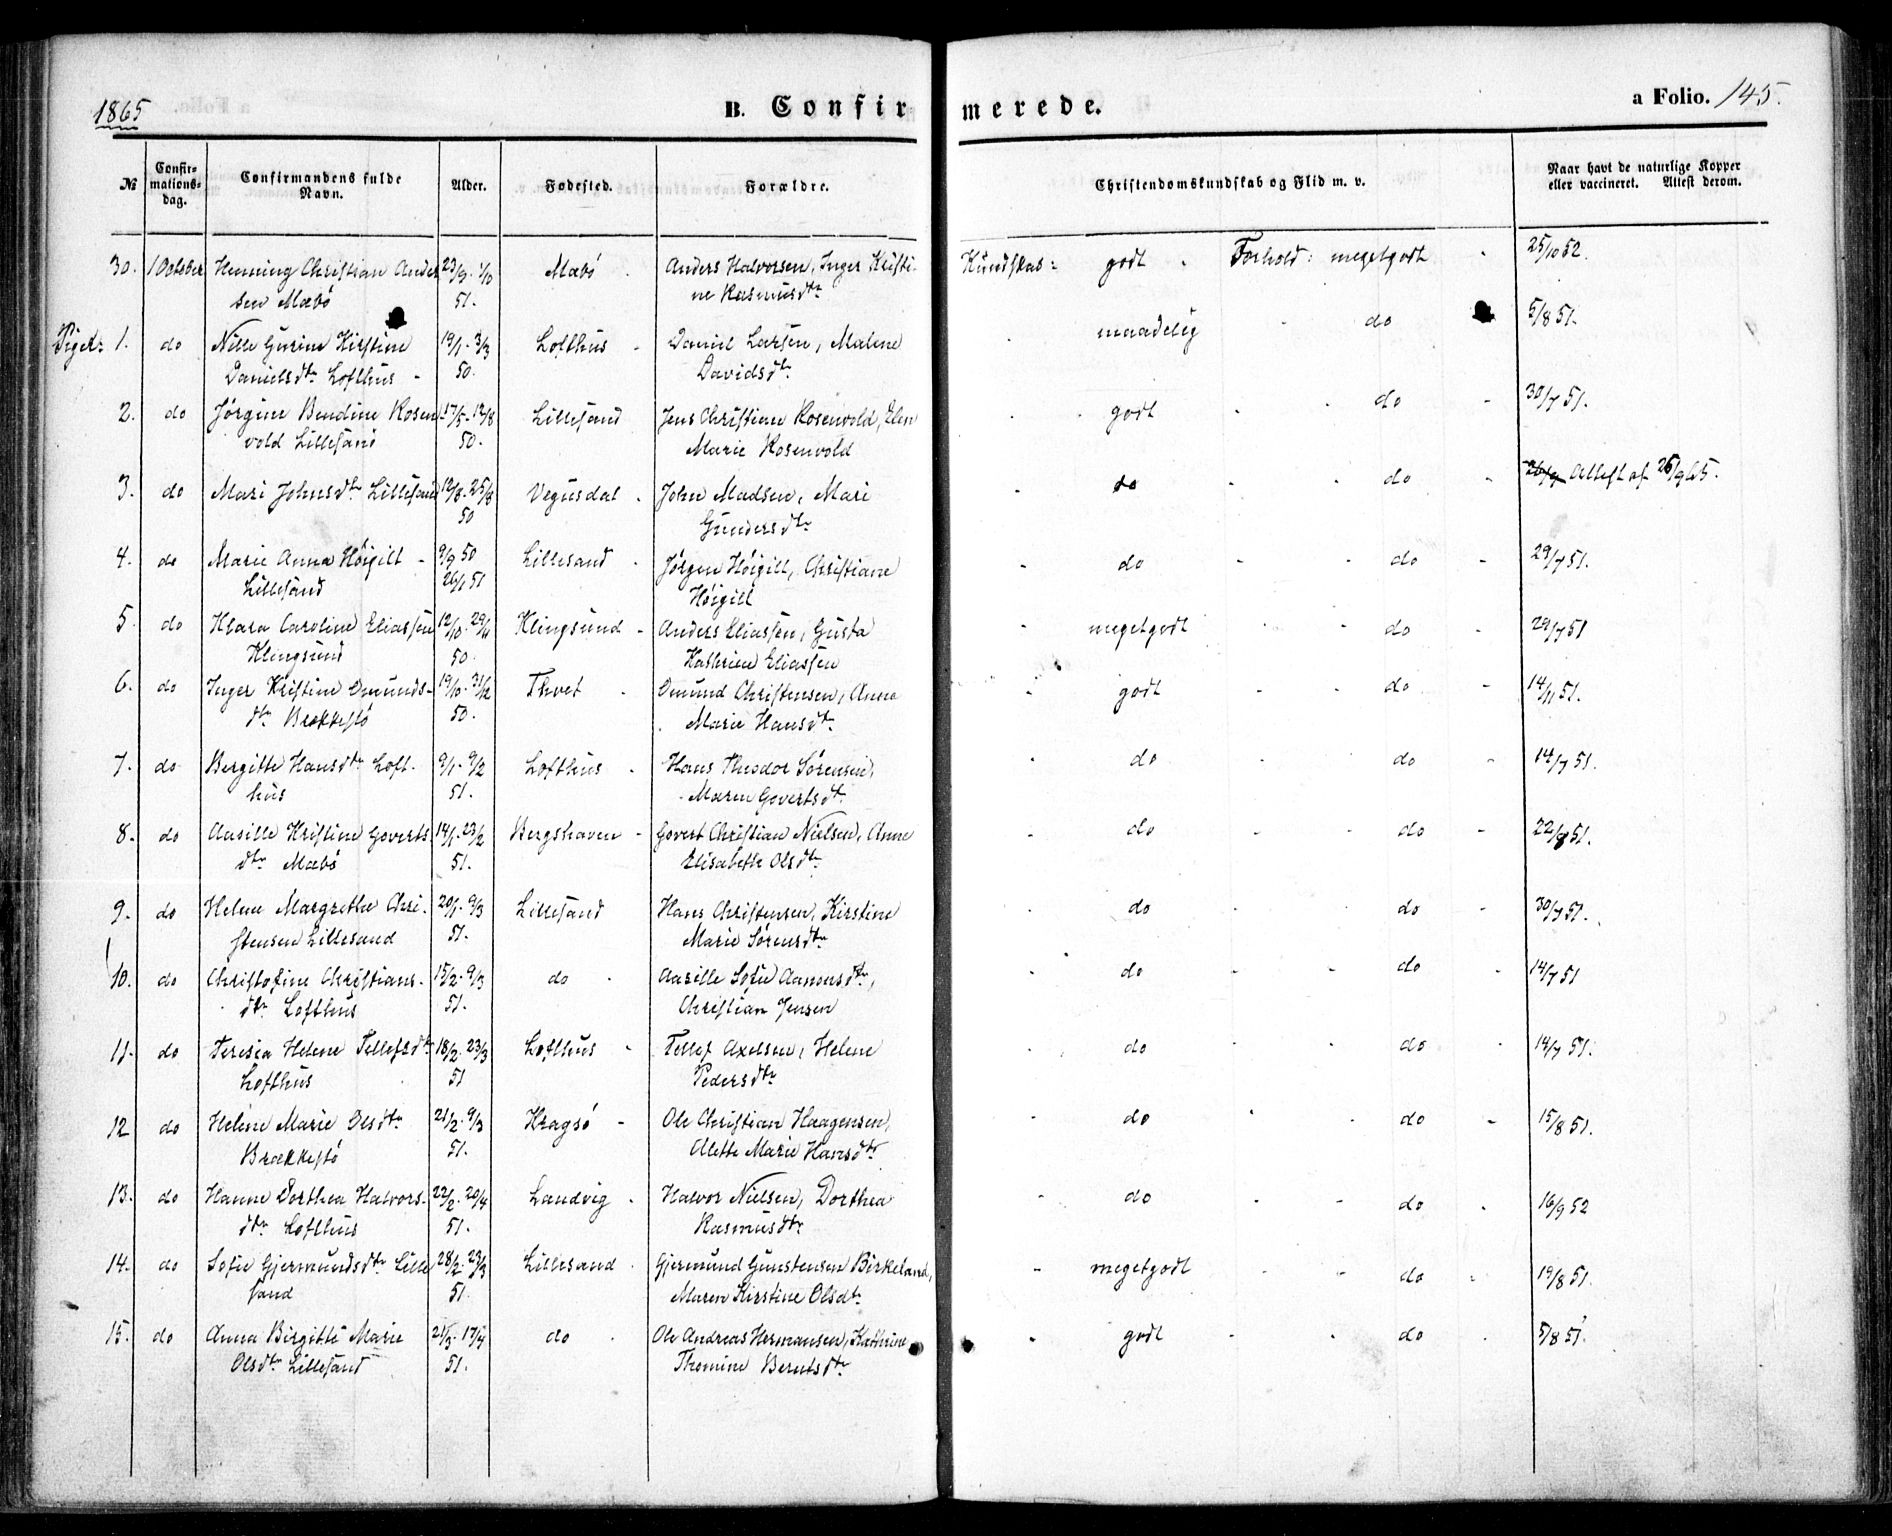 1865
B. Confirmerede.
a Folio. 145.
№
Confir-
mations-
dag.
Confirmandens fulde
Navn.
Alder.
Fødested.
Forældre.
Christendomskundskab og Flid m. v.
Naar havt de naturlige Kopper
eller vaccineret. Attest derom.
30. 1 October Henning Christian Ander 23/9 1/10 Mæbø Anders Halvorsen, Inger Kristi- Kundskab: godt Forhold: megetgodt 25/10 52.
sen Mæbø 51. ne Rasmusdtr
Piger: 1. do Nille Gurine Kirstine 19/1 - 3/3 Lofthus - Daniel Larsen, Malene maadelig do 5/8 51.
Danielsdtr Lofthus - 50. Davidsdtr
2. do Jörgine Bendine Rosen 17/5 - 18/8 Lillesand Jens Christian Rosenvold, Elen godt do 30/7 51.
vold Lillesand 50. Marie Rosenvold
3. do Mari Johnsdtr Lillesand 12/8 - 25/8 Vegusdal - John Madsen, Mari do do Attest af 26/9 65.
50 Gundersdtr
4. do Marie Anna Höigilt - 9/9 50 Lillesand - Jörgen Höigilt, Christiane do do 29/7 51.
Lillesand 26/1 51 Höigilt
5. do Klara Caroline Eliassen 12/10 - 29/11 Klingsund - Anders Eliassen, Gusta megetgodt do 29/7 51
Klingsund 50. Kathrine Eliassen
6. do Inger Kristine Omunds- 19/10 - 31/12 Thvet Omund Christensen, Anne godt do 14/11 51.
dtr Brekkestö 50. Marie Hansdtr
7. do Bergitte Hansdtr Loft- 9/1 - 9/2 Lofthus - Hans Theodor Sörensen, do do 14/7 51.
hus 51. Maren Govertsdtr
8. do Aasille Kristine Goverts- 14/1 - 23/2 Bergshaven - Govert Christian Nielsen, Anne do do 22/8 51.
dtr Mæbö 51. Elisabeth Olsdtr
9. do Helene Margrethe Chri- 20/1 - 9/3 Lillesand Hans Christensen, Kirstine do do 30/7 51.
stensen Lillesand 51. Marie Sörensdtr
10. do Christofine Christians- 15/2 - 9/3 do Aasille Sofie Aanonsdtr, do do 14/7 51
dtr Lofthus 51. Christian Jensen
11. do Teresia Helene Tellefsdtr 18/2 - 23/3 Lofthus - Tellef Axelsen, Helene do do 14/7 51.
Lofthus 51 Pedersdtr
12 do Helene Marie Olsdtr 21/2 - 9/3 Kragsö - Ole Christian Haagensen, do do 15/8 51.
Brækkestö 51. Alette Marie Hansdtr
13. do Hanne Dorthea Halvors- 22/2 - 20/4 Landvig - Halvor Nielsen, Dorthea do do 16/9 52
dtr Lofthus 51. Rasmusdtr
14. do Sofie Gjermundsdtr Lille 28/2 - 23/3 Lillesand - Gjermund Gunstensen Birkeland, megetgodt do 19/8 51.
sand 51. Maren Kirstine Olsdtr
15. do Anna Birgitte Marie 21/3 - 17/4 do Ole Andreas Hermansen, Kathrine godt do 5/8 51.
Olsdtr Lillesand 51. Thomine Berntsdtr